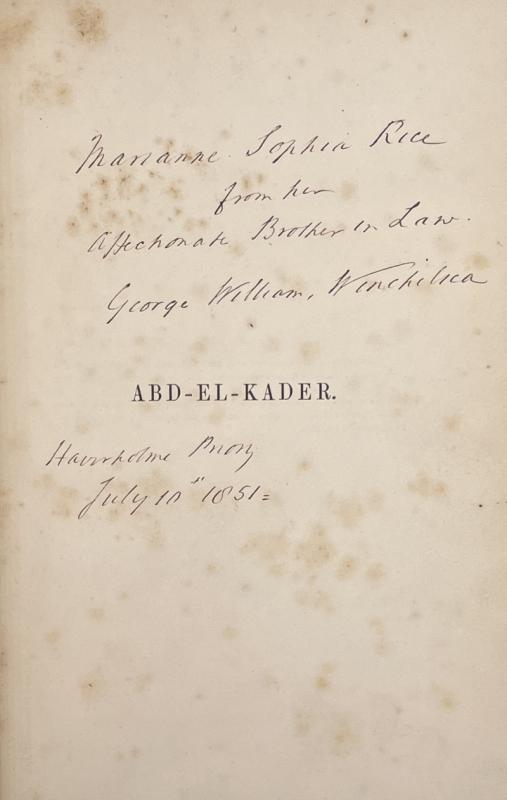 Marianne Sophia Rice
from her
Affectionate Brother in Law.
George William, Winchilsea
ABD-EL-KADER.
Haverholme Priory
July 10" 1851=